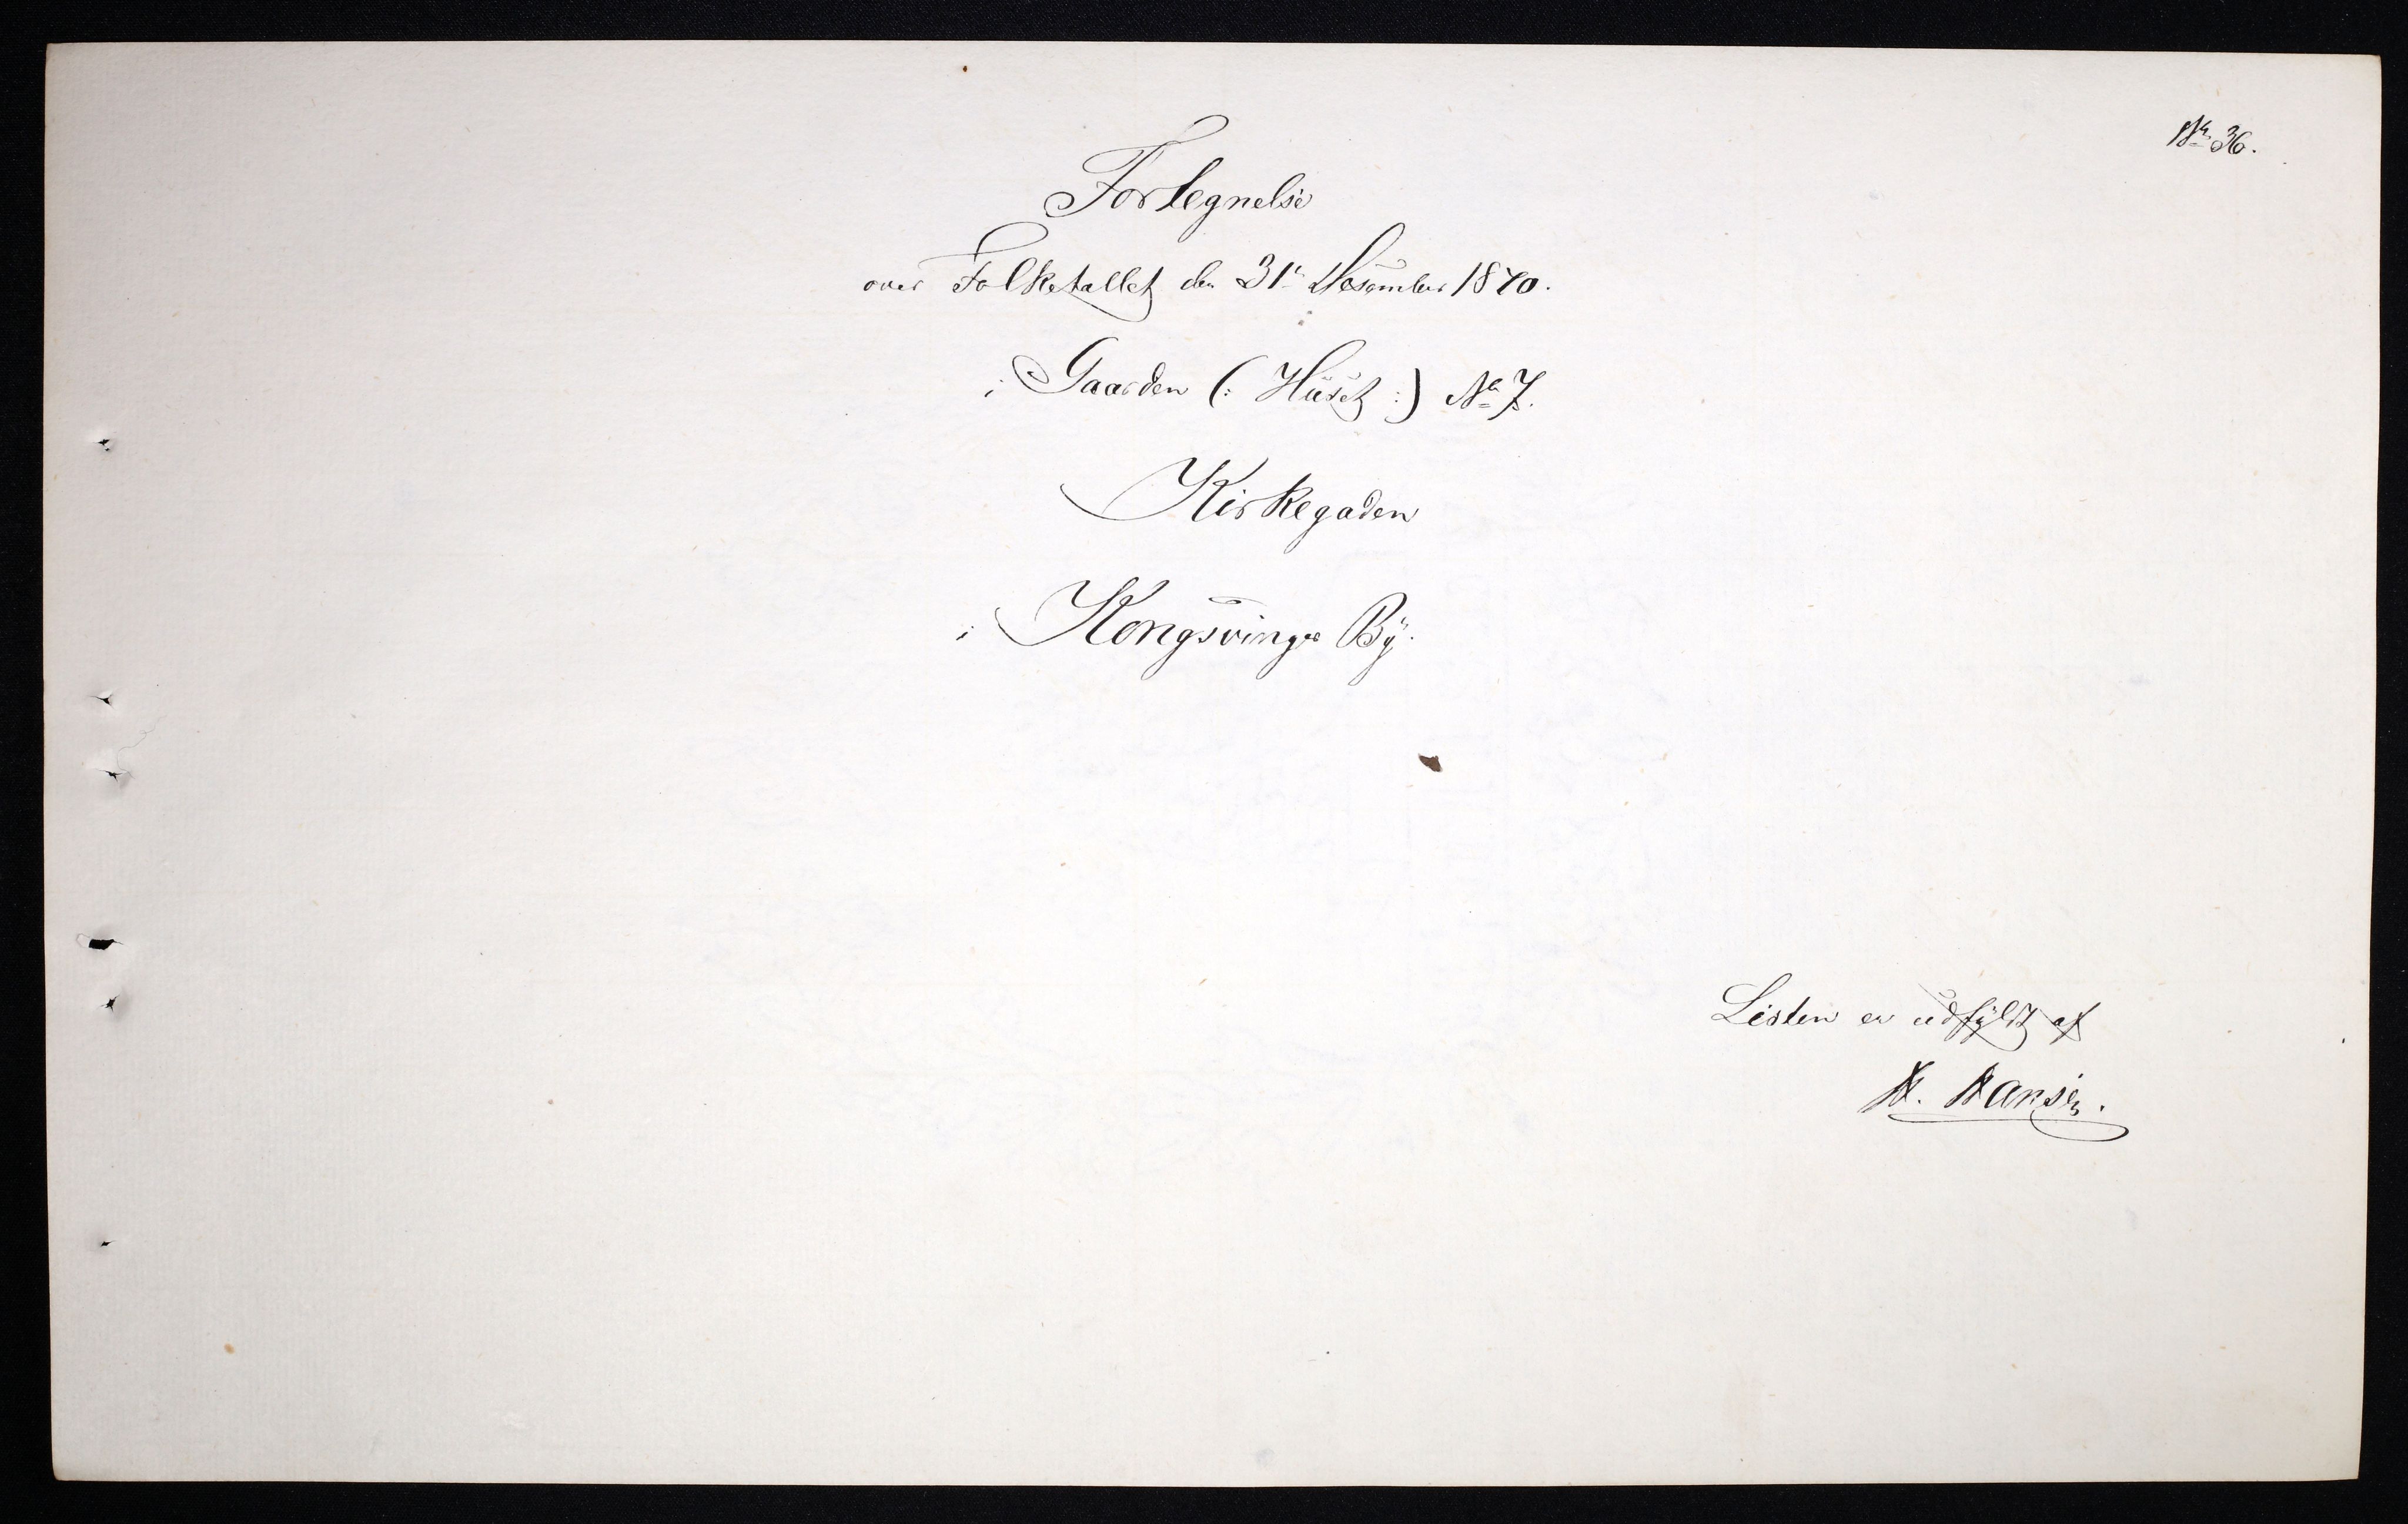 Nr. 36.
Fortegnelse
over Folketallet den 31te Desember 1870.
i Gaarden (: Huset :) No 7.
Kirkegaden
i Kongsvinger By.
Listen er udfyldt af
H. Hansen.